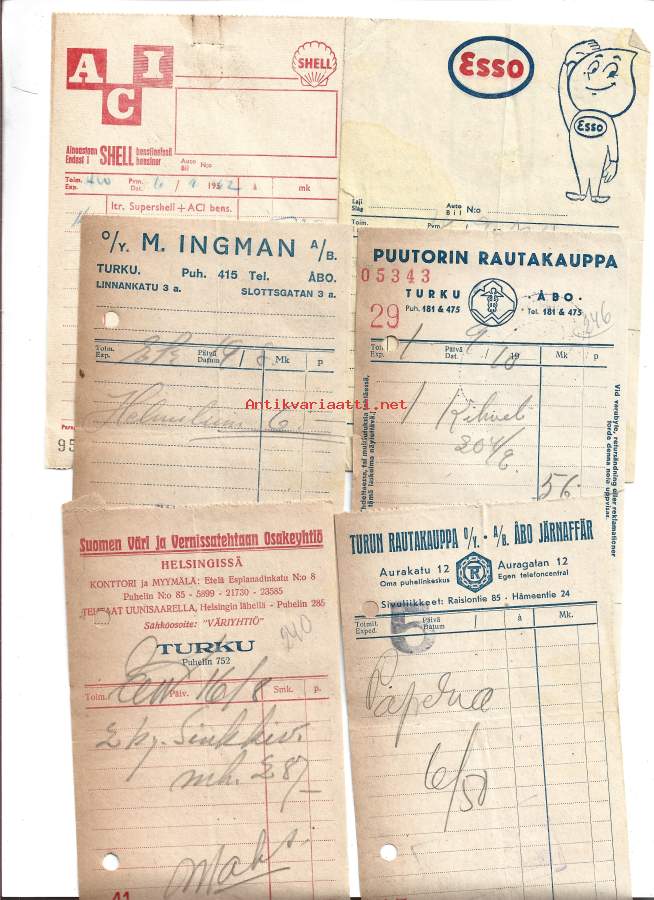 A C I
SHELL
Ainoastaan SHELL bensiinissä
Endast i bensiner
Auto
Bil N:o
Toim. Pvm.
Exp. Dat. 6/9 1952 à mk
ltr. Supershell + ACI bens.
95
Esso
Esso
Laji
Slag
Auto
Bil N:o
Toim. Pvm.
O/Y. M. INGMAN A/B.
TURKU. Puh. 415 Tel. ÅBO.
LINNANKATU 3 a. SLOTTSGATAN 3 a.
Toim. Päivä
Exp. Datum 19/8 Mk p
PUUTORIN RAUTAKAUPPA
05343
TURKU ÅBO
29 Puh. 181 & 475 Tel. 181 & 475
246
Toim. Päivä
Exp. 1 Dat. 9/10 19 Mk p
1 Kihvel
204/2
56
Vid varubyte, returnändning eller reklamationer
torde denna nota uppvisas.
Antikvariaatti.net
Suomen Väri ja Vernissatehtaan Osakeyhtiö
HELSINGISSÄ
KONTTORI ja MYYMÄLÄ: Etelä Esplanadinkatu N:o 8
Puhelin N:o 85 - 5899 - 21730 - 23585
TEHTAAT UUNISAARELLA, Helsingin lähellä - Puhelin 285
Sähköosoite: "VÄRIYHTIÖ"
240
TURKU
Puhelin 752
Toim. Päiv. 16/8 Smk. p.
2 kg. Sinkkiv.
mk. 287/-
Maks.
41
TURUN RAUTAKAUPPA O/Y. - A/B. ÅBO JÄRNAFFÄR
Aurakatu 12 TR Auragatan 12
Oma puhelinkeskus Egen telefoncentral
Sivuliikkeet: Raisiontie 85 - Hämeentie 24
5
Toimit. Päivä
Exped. Datum / à Mk.
6/50